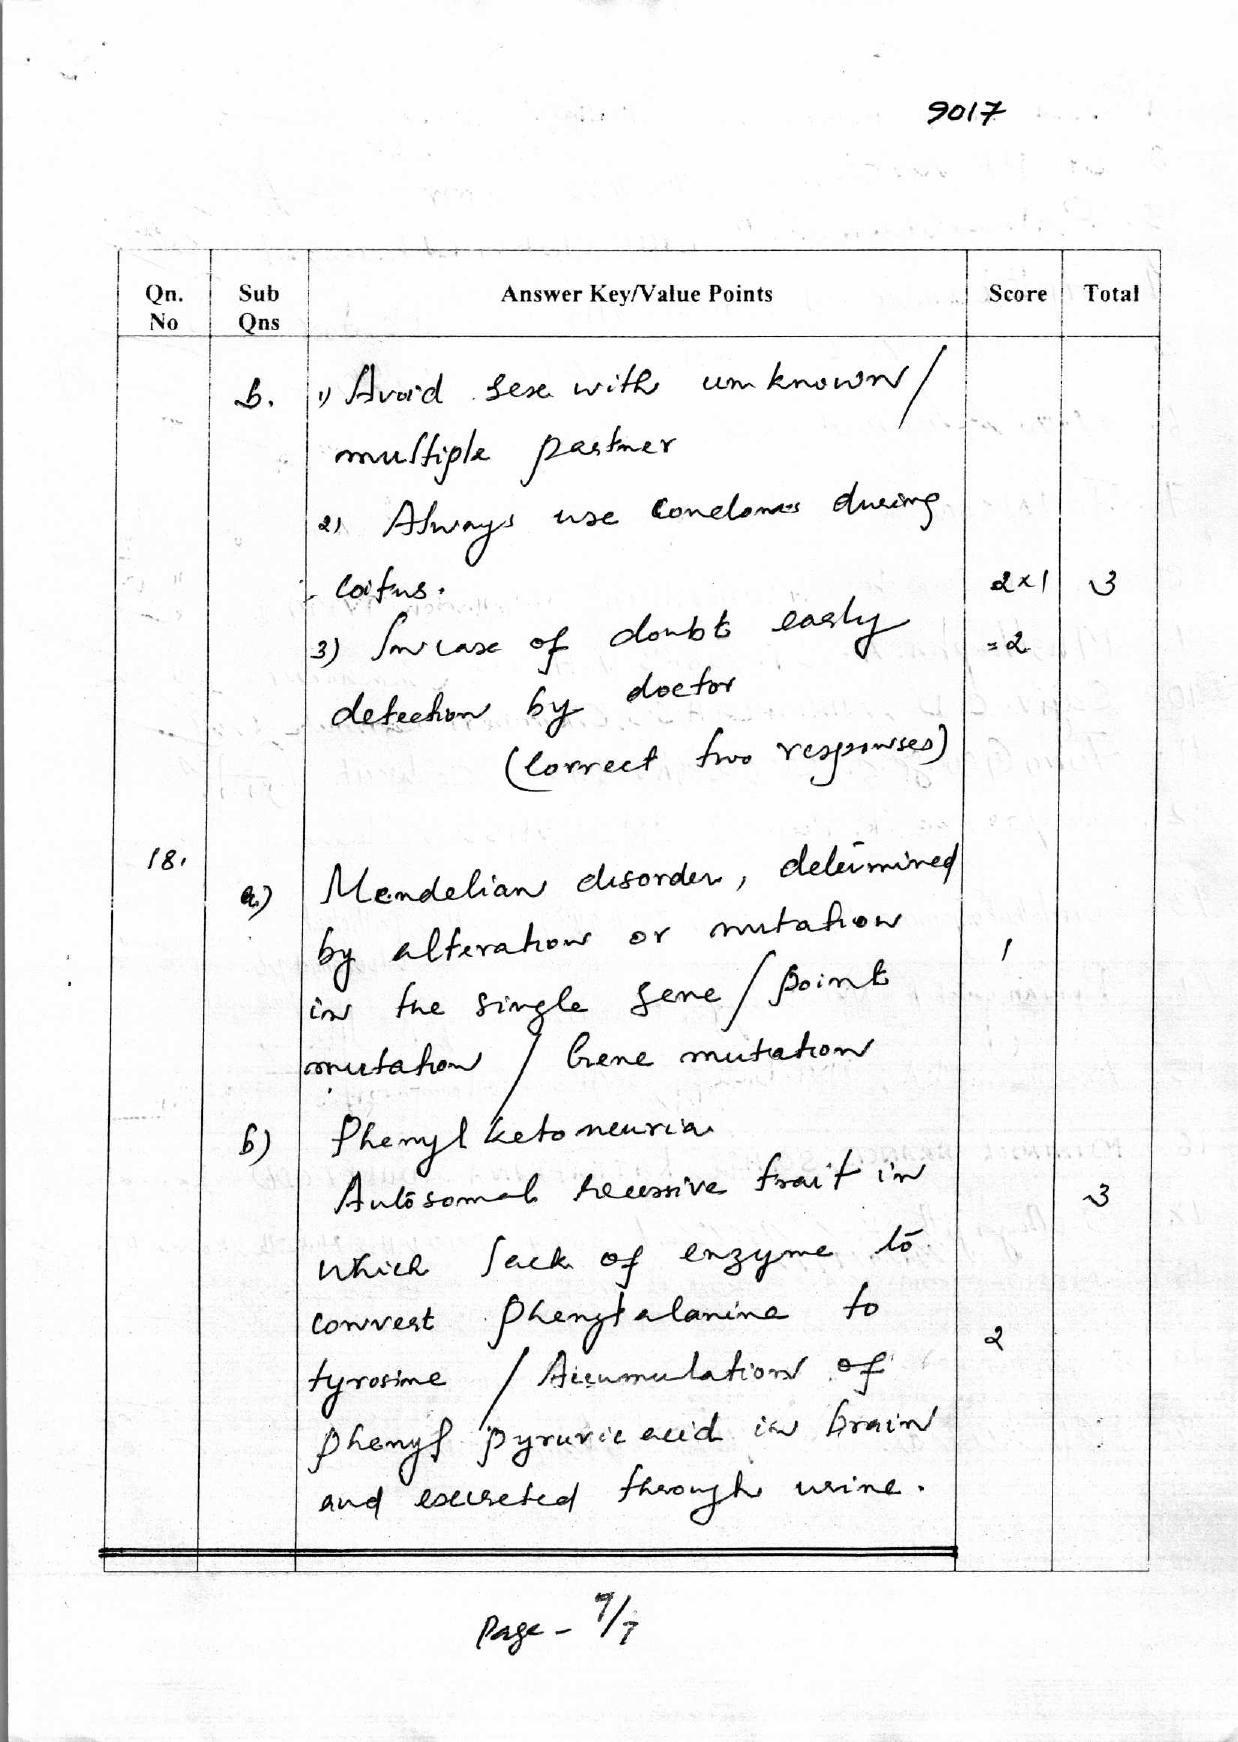 9017
Qn. No	Sub Qns	Answer Key/Value Points	Score	Total
b. 1) Avoid sex with unknown/
multiple partner
2) Always use condoms during
coitus. 2×1 3
3) In case of doubt early =2
detection by doctor
(Correct two responses)
18.
a) Mendelian disorder, determined
by alteration or mutation 1
in the single gene / point
mutation / Gene mutation
b) Phenyl ketoneuria
Autosomal recessive trait in 3
which lack of enzyme to
convert phenylalanine to 2
tyrosine / Accumulation of
phenyl pyruvic acid in brain
and excreted through urine.
Page - 7/7